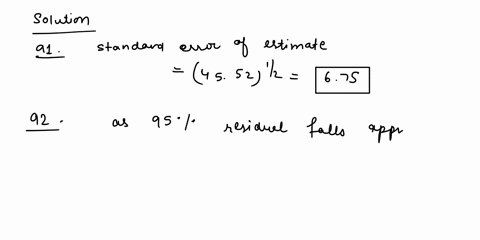 Solution
91. standard error of estimate
= (45.52)^1/2 = 6.75
92. as 95% residual falls appr